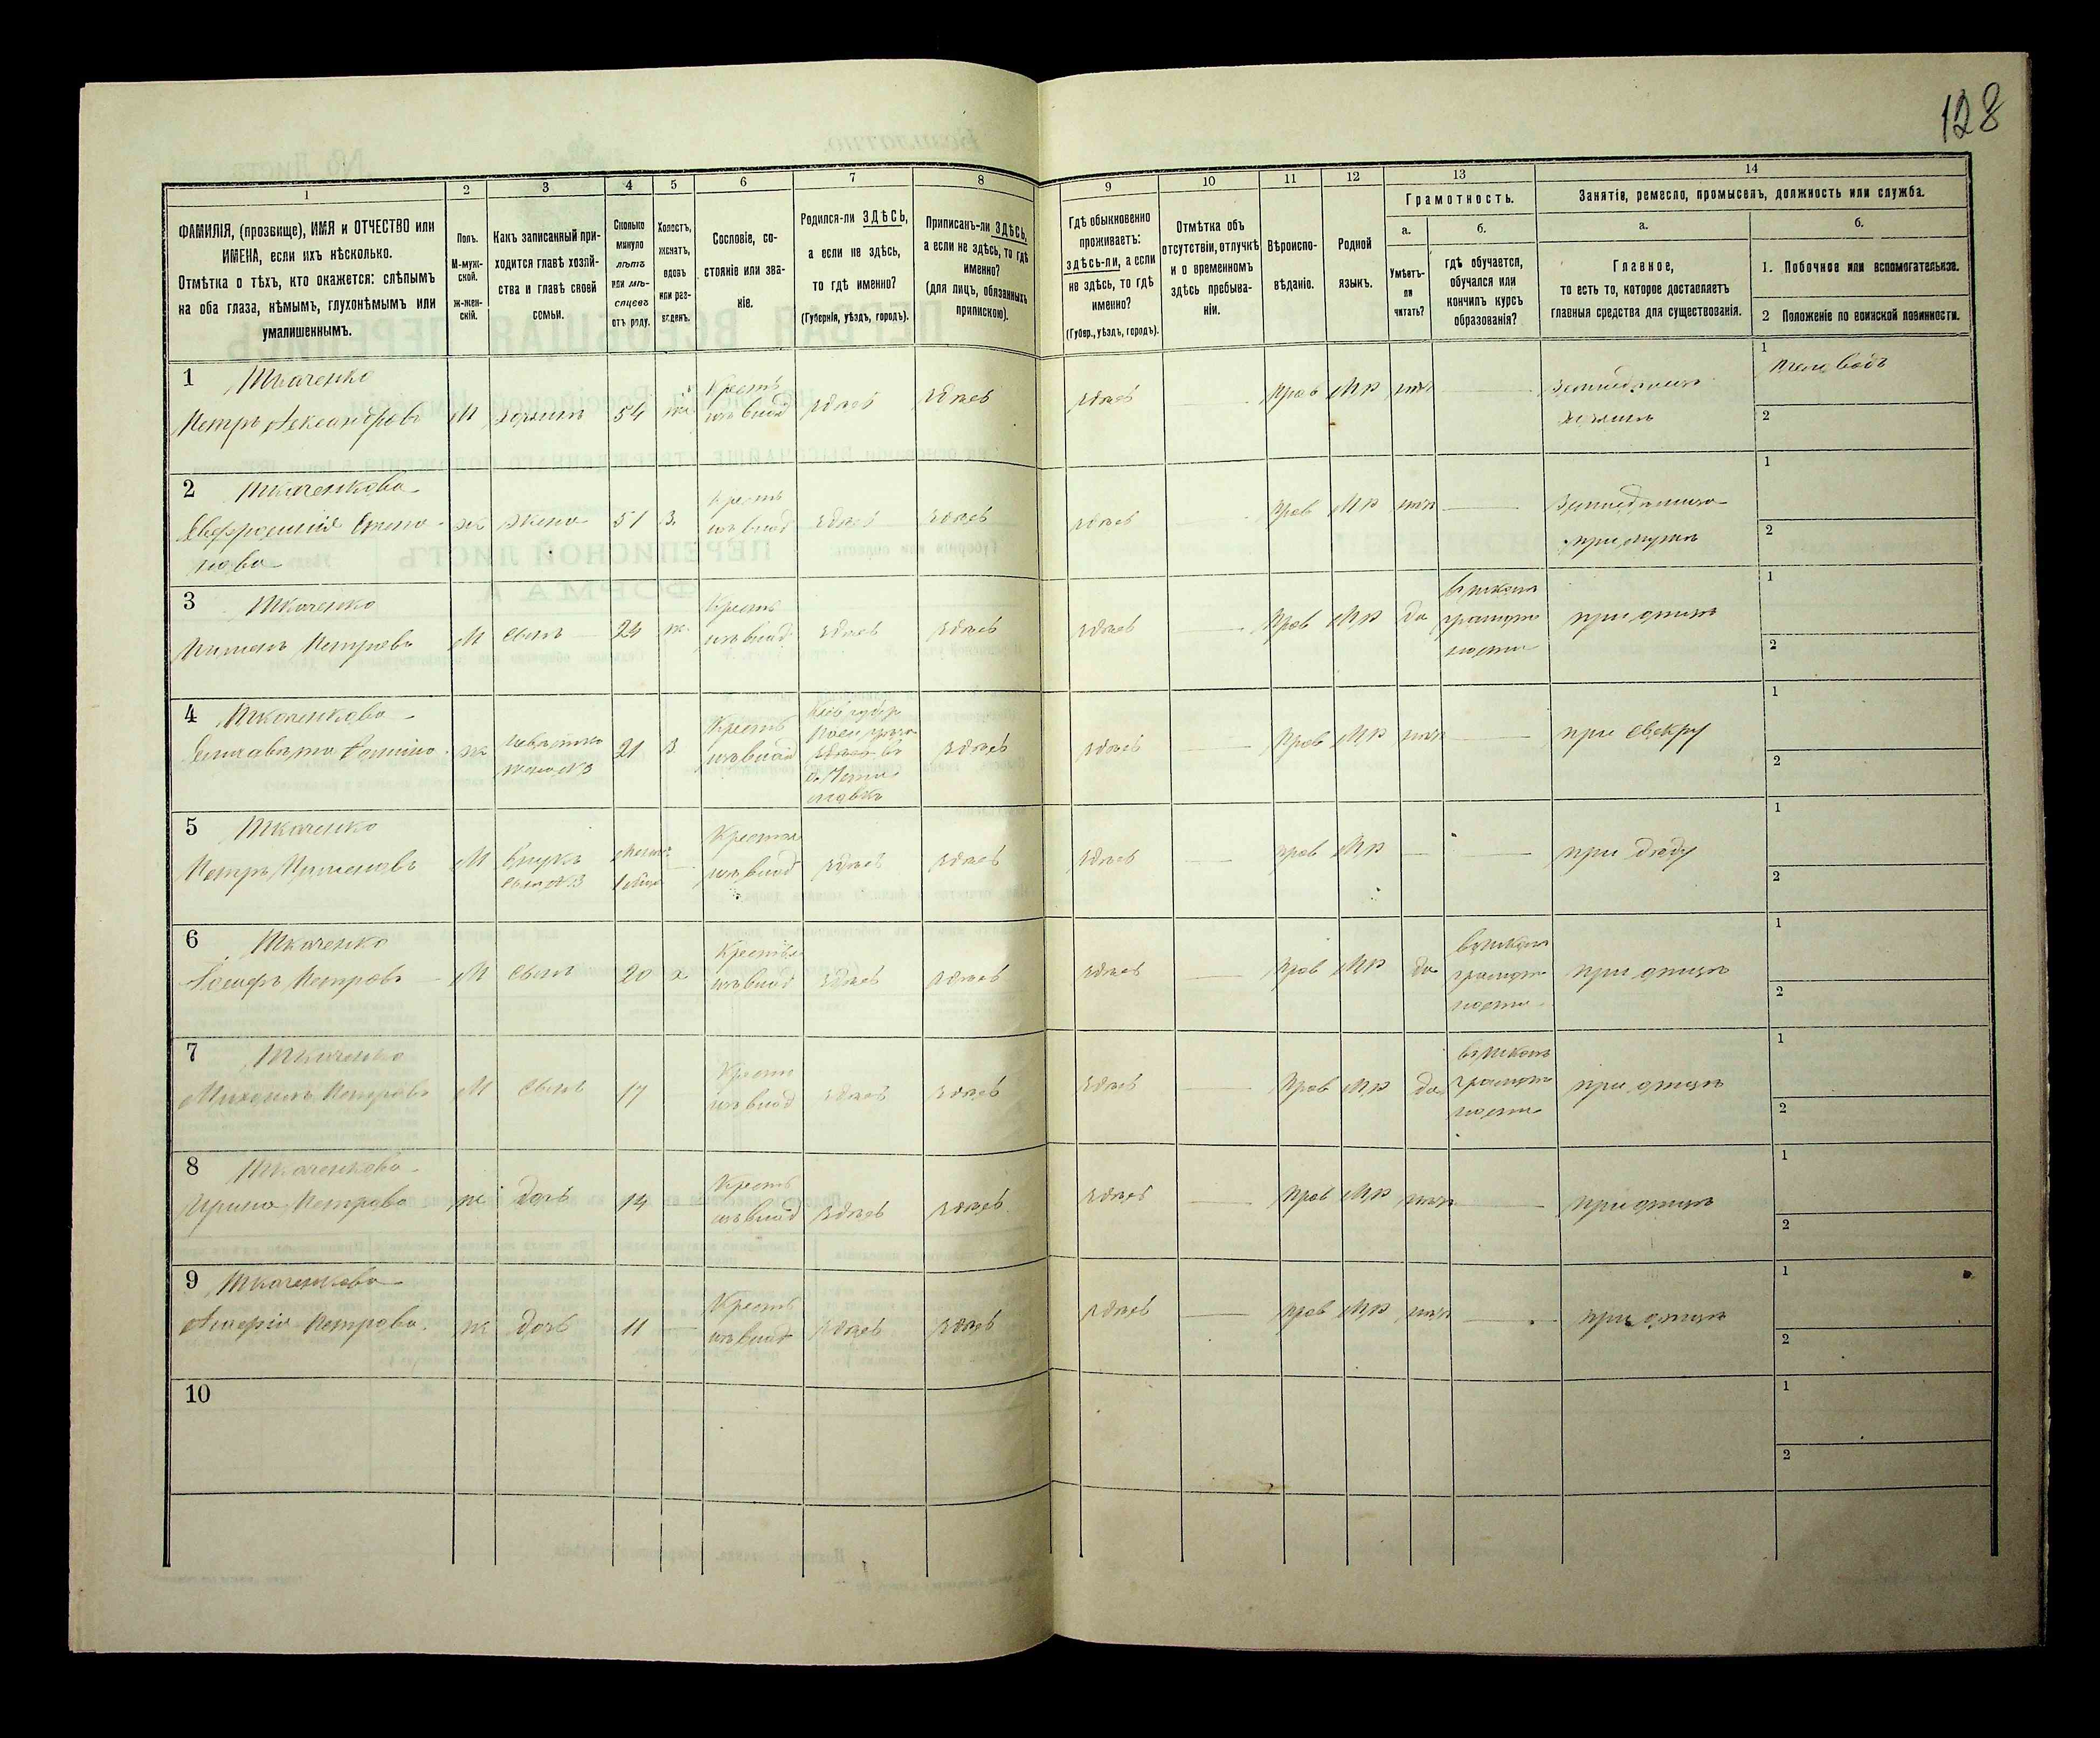 128
1
2
3
4
5
6
7
8
9
10
11
12
13
14
ФАМИЛІЯ, (прозвище), ИМЯ и ОТЧЕСТВО или
ИМЕНА, если ихъ нѣсколько.
Отмѣтка о тѣхъ, кто окажется: слѣпымъ
на оба глаза, нѣмымъ, глухонѣмымъ или
умалишеннымъ.
Полъ.
М-муж-
ской.
ж-жен-
скій.
Какъ записанный при-
ходится главѣ хозяй-
ства и главѣ своей
семьи.
Сколько
минуло
лѣтъ
или мѣ-
сяцевъ
отъ роду.
Холостъ,
женатъ,
вдовъ
или раз-
веденъ.
Сословіе, со-
стояніе или зва-
ніе.
Родился-ли ЗДѢСЬ,
а если не здѣсь,
то гдѣ именно?
(Губернія, уѣздъ, городъ).
Приписанъ-ли ЗДѢСЬ,
а если не здѣсь, то гдѣ
именно?
(для лицъ, обязанныхъ
припискою).
Гдѣ обыкновенно
проживаетъ:
здѣсь-ли, а если
не здѣсь, то гдѣ
именно?
(Губер., уѣздъ, городъ).
Отмѣтка объ
отсутствіи, отлучкѣ
и о временномъ
здѣсь пребыва-
ніи.
Вѣроиспо-
вѣданіе.
Родной
языкъ.
Грамотность.
а.
Умѣетъ-
ли
читать?
б.
гдѣ обучается,
обучался или
кончилъ курсъ
образованія?
Занятія, ремесло, промыселъ, должность или служба.
а.
Главное,
то есть то, которое доставляетъ
главныя средства для существованія.
б.
1. Побочное или вспомогательное.
2 Положеніе по воинской повинности.
1 Ткаченко
Петръ Александровъ М хозяинъ 54 ж Крест изъ влад здѣсь здѣсь здѣсь — Прав Мр нѣтъ — Земледѣлецъ хозяинъ
1 Пчеловодъ
2
2 Ткаченкова
Евфросинія Семено-
нова ж жена 51 з. Крест изъ влад здѣсь здѣсь здѣсь — Прав Мр нѣтъ — при мужѣ
1
2
3 Ткаченко
Пименъ Петровъ М сынъ 24 ж. Крест изъ влад здѣсь здѣсь здѣсь — Прав Мр да при отцѣ
1
2
4 Ткаченкова
Елисавета ж невѣстка жена №3 21 з Крест изъ влад здѣсь здѣсь — Прав Мр нѣтъ — при свекру
1
2
5 Ткаченко
Петръ Пименовъ М внукъ сынъ №3 — Крест изъ влад здѣсь здѣсь здѣсь — Прав Мр — — при дѣду
1
2
6 Ткаченко
Іосифъ Петровъ М сынъ 20 х Крест изъ влад здѣсь здѣсь здѣсь — Прав Мр да при отцѣ
1
2
7 Ткаченко
Михаилъ Петровъ М сынъ 17 Крест изъ влад здѣсь здѣсь здѣсь — Прав Мр да при отцѣ
1
2
8 Ткаченкова
Ирина Петрова ж дочь 14 Крест изъ влад здѣсь здѣсь здѣсь — Прав Мр нѣтъ — при отцѣ
1
2
9 Ткаченкова
Петрова ж дочь 11 — Крест изъ влад здѣсь здѣсь здѣсь — Прав Мр нѣтъ — при отцѣ
1
2
10
1
2